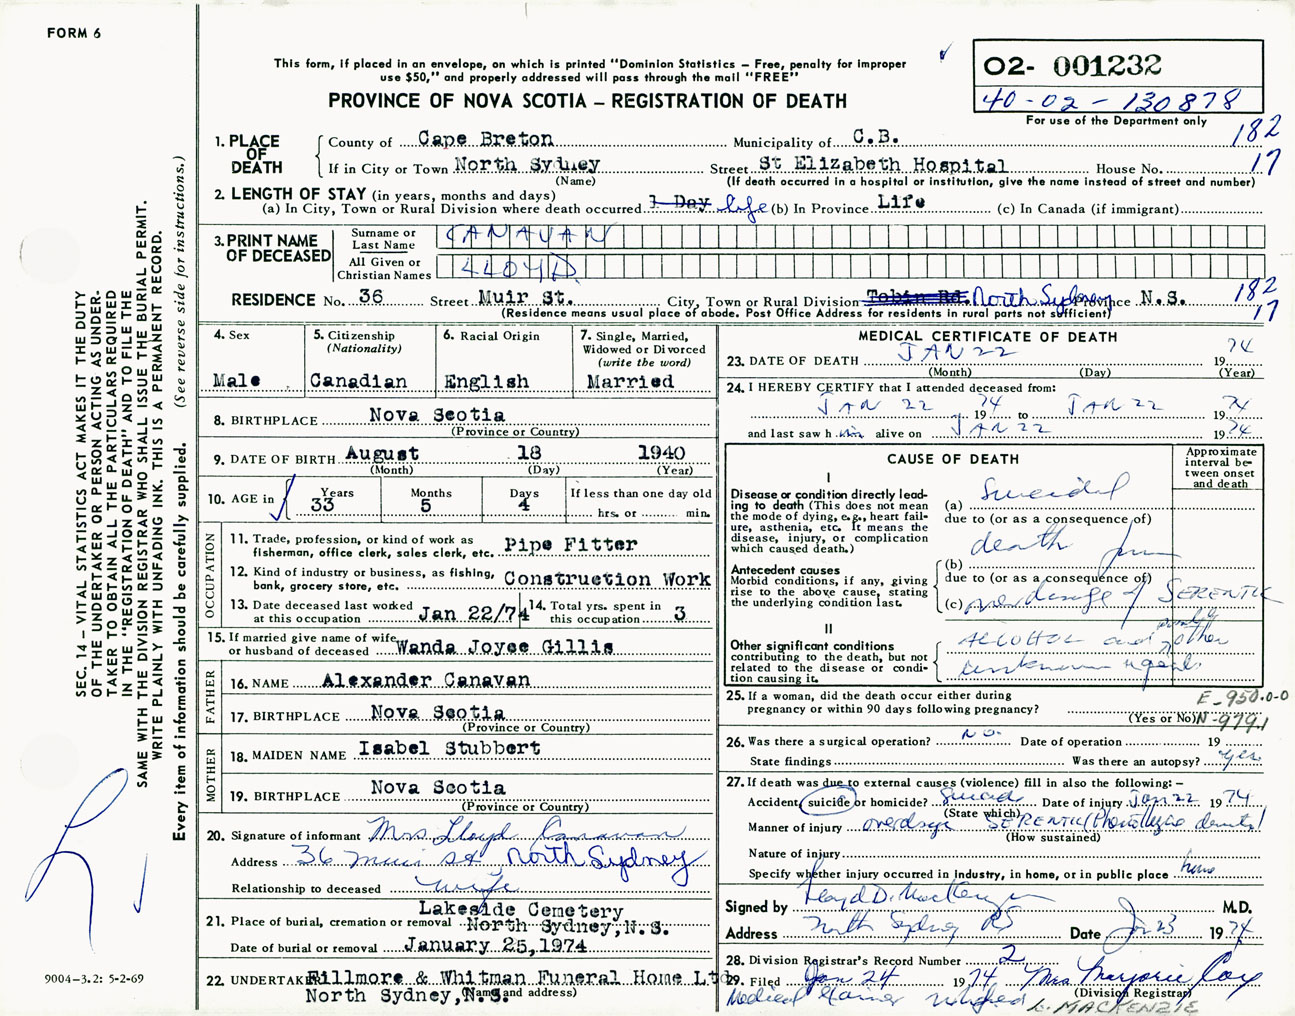 FORM 6
This form, if placed in an envelope, on which is printed "Dominion Statistics – Free, penalty for improper
use $50," and properly addressed will pass through the mail "FREE"
PROVINCE OF NOVA SCOTIA – REGISTRATION OF DEATH
02- 001232
40-02-130878
For use of the Department only
182
17
1. PLACE OF DEATH
County of Cape Breton Municipality of C.B.
If in City or Town North Sydney Street St Elizabeth Hospital House No.
(Name) (If death occurred in a hospital or institution, give the name instead of street and number)
2. LENGTH OF STAY (in years, months and days)
(a) In City, Town or Rural Division where death occurred 1 Day life (b) In Province Life (c) In Canada (if immigrant)
3. PRINT NAME OF DECEASED
Surname or Last Name CANAVAN
All Given or Christian Names LLOYD
RESIDENCE No. 36 Street Muir St. City, Town or Rural Division Tobin Rd. North Sydney Province N.S.
182
17
(Residence means usual place of abode. Post Office Address for residents in rural parts not sufficient)
4. Sex
Male
5. Citizenship (Nationality)
Canadian
6. Racial Origin
English
7. Single, Married, Widowed or Divorced (write the word)
Married
8. BIRTHPLACE Nova Scotia
(Province or Country)
9. DATE OF BIRTH August 18 1940
(Month) (Day) (Year)
10. AGE in Years 33 Months 5 Days 4 If less than one day old
hrs. or min.
OCCUPATION
11. Trade, profession, or kind of work as fisherman, office clerk, sales clerk, etc. Pipe Fitter
12. Kind of industry or business, as fishing, bank, grocery store, etc. Construction Work
13. Date deceased last worked at this occupation Jan 22/74
14. Total yrs. spent in this occupation 3
15. If married give name of wife or husband of deceased Wanda Joyce Gillis
FATHER
16. NAME Alexander Canavan
17. BIRTHPLACE Nova Scotia
(Province or Country)
MOTHER
18. MAIDEN NAME Isabel Stubbert
19. BIRTHPLACE Nova Scotia
(Province or Country)
20. Signature of informant Mrs. Lloyd Canavan
Address 36 Muir St North Sydney
Relationship to deceased wife
21. Place of burial, cremation or removal Lakeside Cemetery
North Sydney, N.S.
Date of burial or removal January 25, 1974
22. UNDERTAKER Fillmore & Whitman Funeral Home Ltd
North Sydney, N.S.
(Name and address)
MEDICAL CERTIFICATE OF DEATH
23. DATE OF DEATH JAN 22 1974
(Month) (Day) (Year)
24. I HEREBY CERTIFY that I attended deceased from:
JAN 22 1974 to JAN 22 1974
and last saw him alive on JAN 22 1974
CAUSE OF DEATH
Approximate interval between onset and death
I
Disease or condition directly leading to death (This does not mean the mode of dying, e.g., heart failure, asthenia, etc. It means the disease, injury, or complication which caused death.)
(a) Suicidal
due to (or as a consequence of)
death from
Antecedent causes
Morbid conditions, if any, giving rise to the above cause, stating the underlying condition last.
(b)
due to (or as a consequence of)
(c) overdosage of SERENTIL
II
Other significant conditions
contributing to the death, but not related to the disease or condition causing it.
ALCOHOL and possibly other
unknown agents
25. If a woman, did the death occur either during pregnancy or within 90 days following pregnancy?
(Yes or No)
E-950.0-0
N-979.1
26. Was there a surgical operation? No. Date of operation 19
State findings Was there an autopsy? yes
27. If death was due to external causes (violence) fill in also the following: –
Accident, suicide or homicide? Suicide Date of injury Jan 22 1974
(State which)
Manner of injury overdose SERENTIL
(How sustained)
Nature of injury
Specify whether injury occurred in industry, in home, or in public place home
Signed by Lloyd D. MacKenzie M.D.
Address North Sydney NS Date Jan 23 1974
28. Division Registrar's Record Number 2
29. Filed Jan 24 1974 Mrs Marjorie Cox
(Division Registrar)
Medical Examiner
L. MACKENZIE
SEC. 14 – VITAL STATISTICS ACT MAKES IT THE DUTY
OF THE UNDERTAKER OR PERSON ACTING AS UNDER-
TAKER TO OBTAIN ALL THE PARTICULARS REQUIRED
IN THE "REGISTRATION OF DEATH" AND TO FILE THE
SAME WITH THE DIVISION REGISTRAR WHO SHALL ISSUE THE BURIAL PERMIT.
WRITE PLAINLY WITH UNFADING INK. THIS IS A PERMANENT RECORD.
Every item of information should be carefully supplied. (See reverse side for instructions.)
9004-3.2: 5-2-69